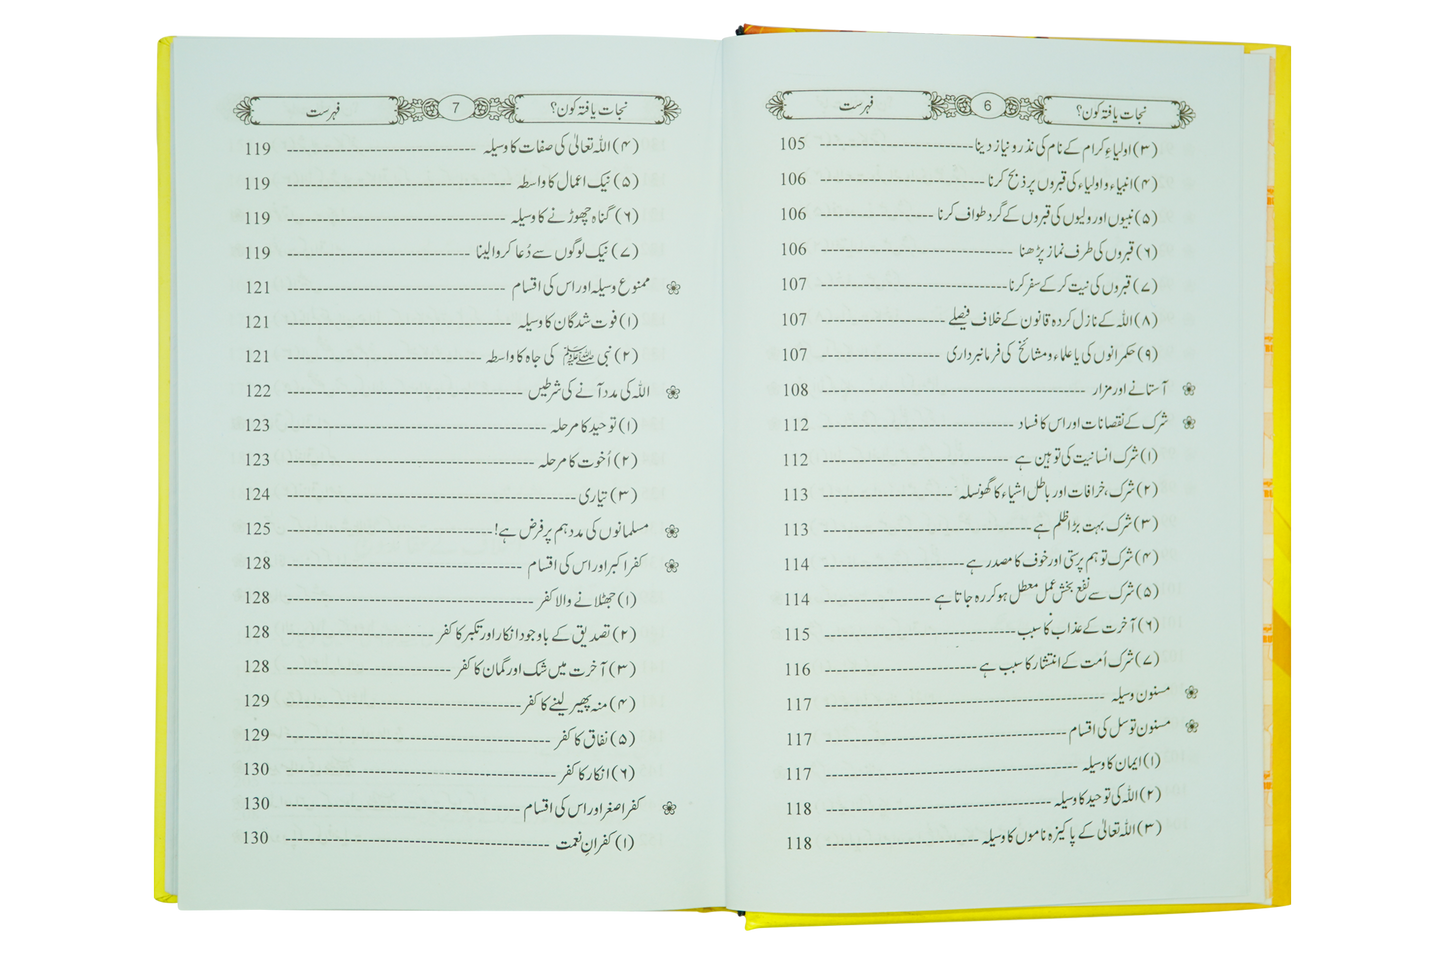 نجات یافتہ کون؟ 6 فہرست
(۳) اولیاءِ کرام کے نام کی نذر و نیاز دینا 105
(۴) انبیاء و اولیاء کی قبروں پر ذبح کرنا 106
(۵) نبیوں اور ولیوں کی قبروں کے گرد طواف کرنا 106
(۶) قبروں کی طرف نماز پڑھنا 106
(۷) قبروں کی نیت کر کے سفر کرنا 107
(۸) اللہ کے نازل کردہ قانون کے خلاف فیصلے 107
(۹) حکمرانوں کی یا علماء و مشائخ کی فرمانبرداری 107
آستانے اور مزار 108
شرک کے نقصانات اور اس کا فساد 112
(۱) شرک انسانیت کی توہین ہے 112
(۲) شرک، خرافات اور باطل اشیاء کا گھونسلہ 113
(۳) شرک بہت بڑا ظلم ہے 113
(۴) شرک توہم پرستی اور خوف کا مصدر ہے 114
(۵) شرک سے نفع بخش عمل معطل ہو کر رہ جاتا ہے 114
(۶) آخرت کے عذاب کا سبب 115
(۷) شرک اُمت کے انتشار کا سبب ہے 116
مسنون وسیلہ 117
مسنون توسل کی اقسام 117
(۱) ایمان کا وسیلہ 117
(۲) اللہ کی توحید کا وسیلہ 118
(۳) اللہ تعالیٰ کے پاکیزہ ناموں کا وسیلہ 118
نجات یافتہ کون؟ 7 فہرست
(۴) اللہ تعالیٰ کی صفات کا وسیلہ 119
(۵) نیک اعمال کا واسطہ 119
(۶) گناہ چھوڑنے کا وسیلہ 119
(۷) نیک لوگوں سے دُعا کروا لینا 119
ممنوع وسیلہ اور اس کی اقسام 121
(۱) فوت شدگان کا وسیلہ 121
(۲) نبی ﷺ کی جاہ کا واسطہ 121
اللہ کی مدد آنے کی شرطیں 122
(۱) توحید کا مرحلہ 123
(۲) اُخوت کا مرحلہ 123
(۳) تیاری 124
مسلمانوں کی مدد ہم پر فرض ہے! 125
کفر اکبر اور اس کی اقسام 128
(۱) جھٹلانے والا کفر 128
(۲) تصدیق کے باوجود انکار اور تکبر کا کفر 128
(۳) آخرت میں شک اور گمان کا کفر 128
(۴) منہ پھیر لینے کا کفر 129
(۵) نفاق کا کفر 129
(۶) انکار کا کفر 130
کفر اصغر اور اس کی اقسام 130
(۱) کفرانِ نعمت 130